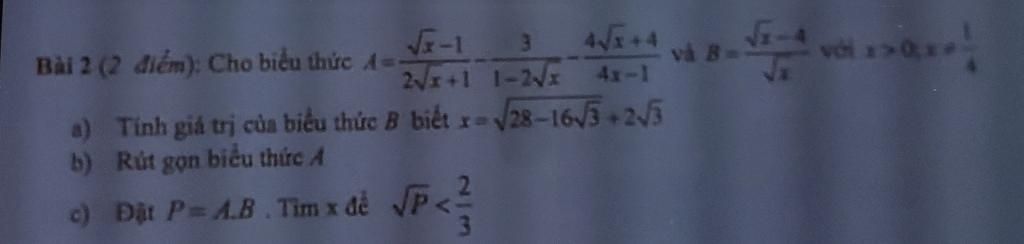 Bài 2 (2 điểm): Cho biểu thức A = \frac{\sqrt{x}-1}{2\sqrt{x}+1} - \frac{3}{1-2\sqrt{x}} - \frac{4\sqrt{x}+4}{4x-1} và B = \frac{\sqrt{x}-4}{\sqrt{x}} với x > 0; x ≠ \frac{1}{4}
a) Tính giá trị của biểu thức B biết x = \sqrt{28-16\sqrt{3}} + 2\sqrt{3}
b) Rút gọn biểu thức A
c) Đặt P = A.B . Tìm x để \sqrt{P} < \frac{2}{3}